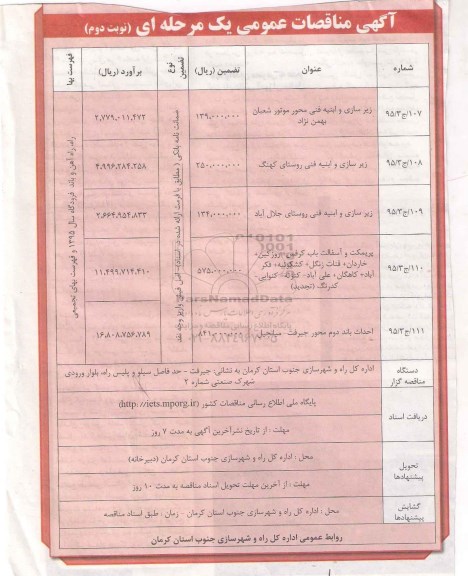 آگهی مناقصات عمومی یک مرحله ای (نوبت دوم)
شماره
عنوان
تضمین (ریال)
نوع تضمین
برآورد (ریال)
فهرست بها
۹۵/۳/ج/۱۰۷
زیر سازی و ابنیه فنی محور موتور شعبان
بهمن نژاد
۱۳۹،۰۰۰،۰۰۰
۲،۷۷۹،۰۱۱،۴۷۲
۹۵/۳/ج/۱۰۸
زیر سازی و ابنیه فنی روستای کهنگ
۲۵۰،۰۰۰،۰۰۰
۴،۹۹۶،۲۸۴،۲۵۸
۹۵/۳/ج/۱۰۹
زیر سازی و ابنیه فنی روستای جلال آباد
۱۳۴،۰۰۰،۰۰۰
۲،۶۶۴،۹۵۴،۸۳۳
۹۵/۳/ج/۱۱۰
کنرنگ (تجدید)
۵۷۵،۰۰۰،۰۰۰
۱۱،۴۹۹،۷۱۴،۴۱۰
۹۵/۳/ج/۱۱۱
احداث باند دوم محور جیرفت -
۱۶،۸۰۸،۷۵۶،۷۸۹
ضمانت نامه بانکی ( مطابق با فرمت ارائه شده در اسناد)- اصل فیش واریز وجه نقد
راه، راه آهن و باند فرودگاه سال ۱۳۹۵ و فهرست بهای تجمیعی
دستگاه
مناقصه گزار
اداره کل راه و شهرسازی جنوب استان کرمان به نشانی: جیرفت - حد فاصل سیلو و پلیس راه، بلوار ورودی
شهرک صنعتی شماره ۲
دریافت اسناد
پایگاه ملی اطلاع رسانی مناقصات کشور (http://iets.mporg.ir)
مهلت : از تاریخ نشرآخرین آگهی به مدت ۷ روز
تحویل
پیشنهادها
محل : اداره کل راه و شهرسازی جنوب استان کرمان (دبیرخانه)
مهلت : از آخرین مهلت تحویل اسناد مناقصه به مدت ۱۰ روز
گشایش
پیشنهادها
محل : اداره کل راه و شهرسازی جنوب استان کرمان - زمان : طبق اسناد مناقصه
روابط عمومی اداره کل راه و شهرسازی جنوب استان کرمان